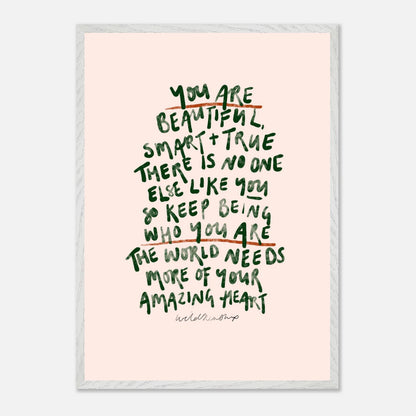 YOU ARE
BEAUTIFUL,
SMART + TRUE
THERE IS NO ONE
ELSE LIKE YOU
SO KEEP BEING
WHO YOU ARE
THE WORLD NEEDS
MORE OF YOUR
AMAZING HEART